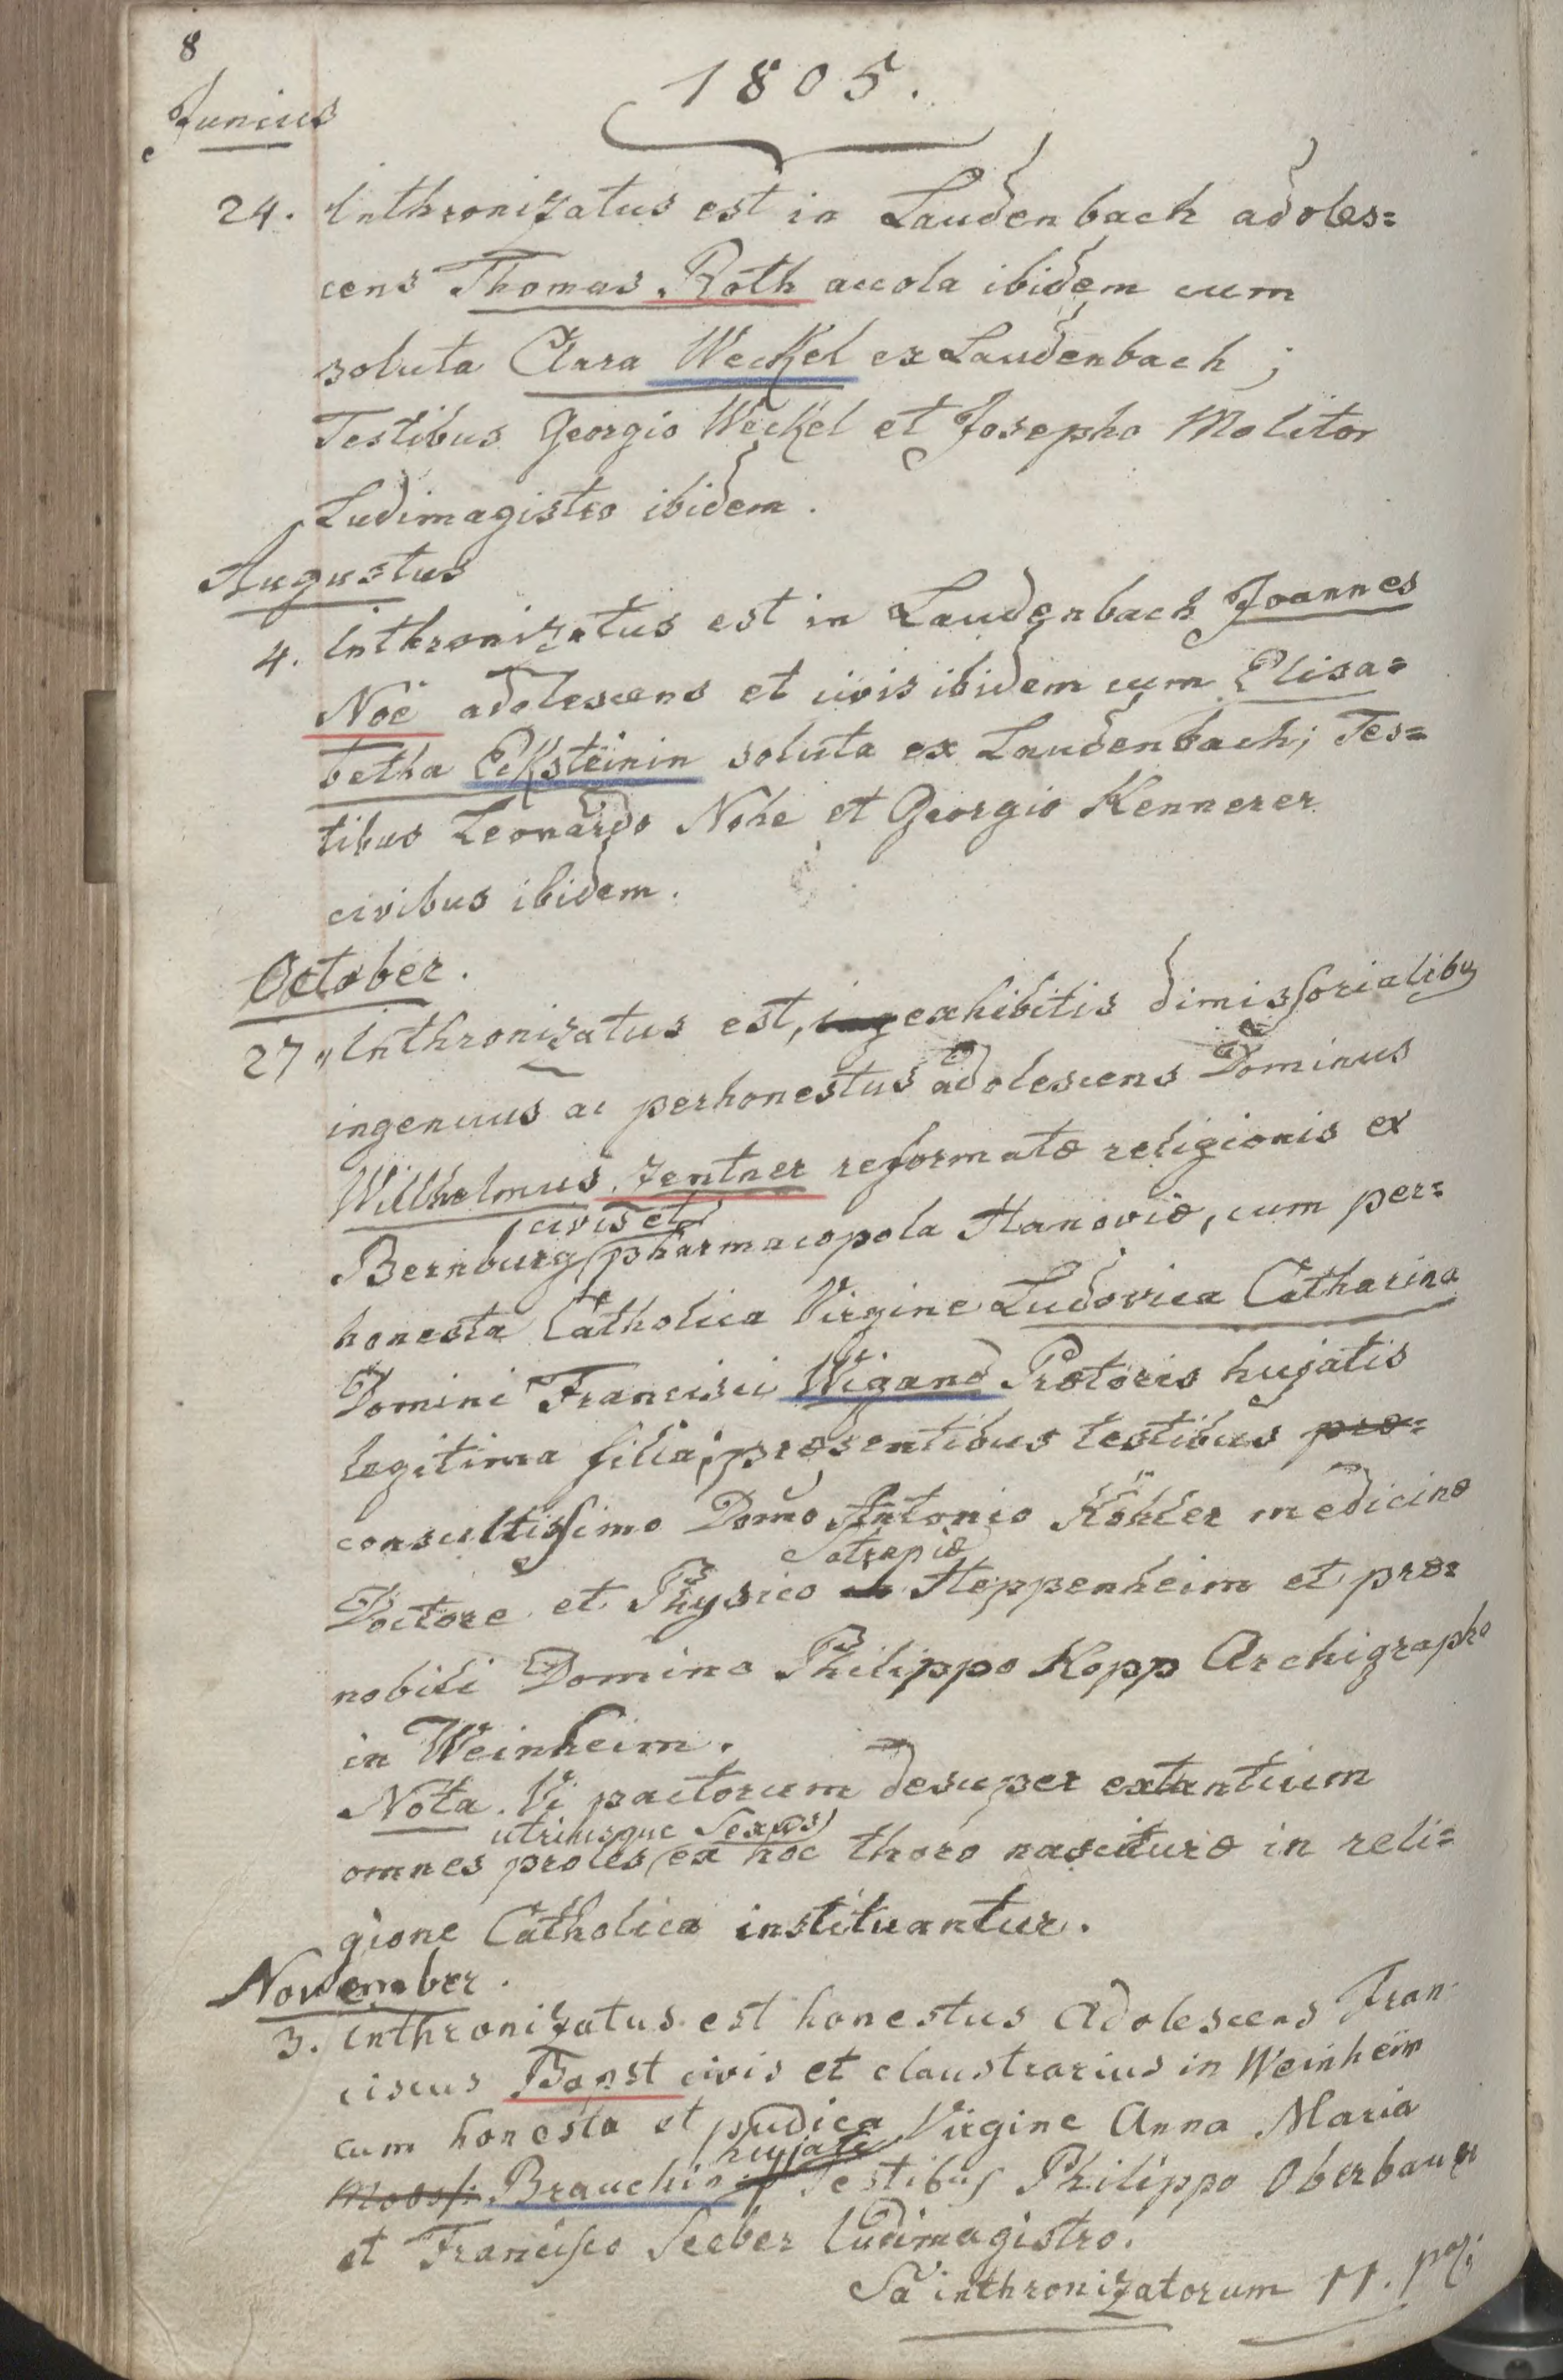 8
1805.
Junius
24. Inthronizatus est in Laudenbach adoles=
cens Thomas Roth accola ibidem cum
soluta Clara Weckel ex Laudenbach;
Testibus Georgio Weckel et Josepho Molitor
Ludimagistro ibidem.
Augustus
4. Inthronizatus est in Laudenbach Joannes
Noë adolescens et civis ibidem cum Elisa=
betha Ecksteinin soluta ex Laudenbach; Tes=
tibus Leonardo Nohe et Georgio Kennerer
civibus ibidem.
October.
27 Inthronizatus est, ing exhibitis dimissorialibus
ingenuus ac perhonestus adolescens Dominus
Wilhelmus Zentner reformatæ religionis ex
civis et
Bernburg pharmacopola Hanoviæ, cum per=
honesta Catholica Virgine Ludovica Catharina
Domini Francisci Wigand Prætoris hujatis
legitima filia; præsentibus testibus præ=
consultissimo Domo Antonio Köhler medicinæ
Satrapiæ
Doctore et Physico in Heppenheim et præ=
nobili Domino Philippo Kopp Archigrapho
in Weinheim.
Nota. Vi pactorum desuper extantium
utriusque Sexus
omnes proles ex hoc thoro nascituræ in reli=
gione Catholica instituantur.
November.
3. Inthronizatus est honestus adolescens Fran
ciscus Bapst civis et claustrarius in Weinheim
cum honesta et pudica Virgine Anna Maria
hujate
Brauchin Testibus Philippo Oberbauer
et Francisco Seeber ludimagistro.
Sa inthronizatorum 11.